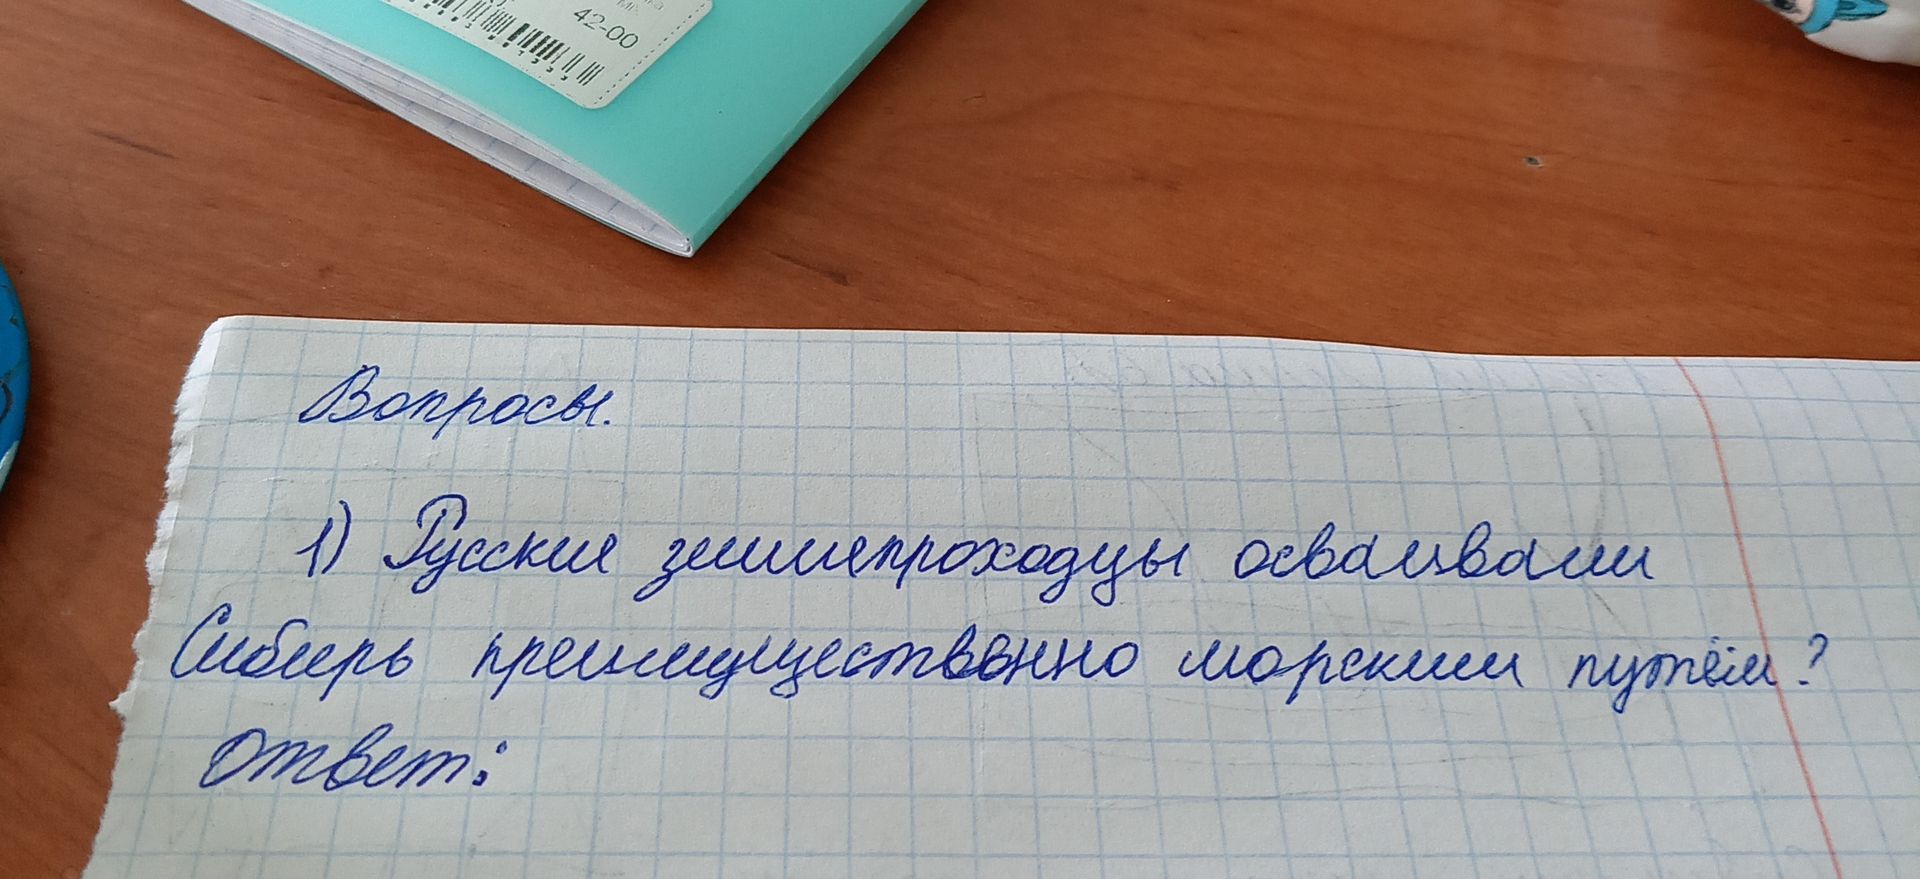 42-00
Вопросы.
1) Русские землепроходцы осваивали
Сибирь преимущественно морским путём?
Ответ: